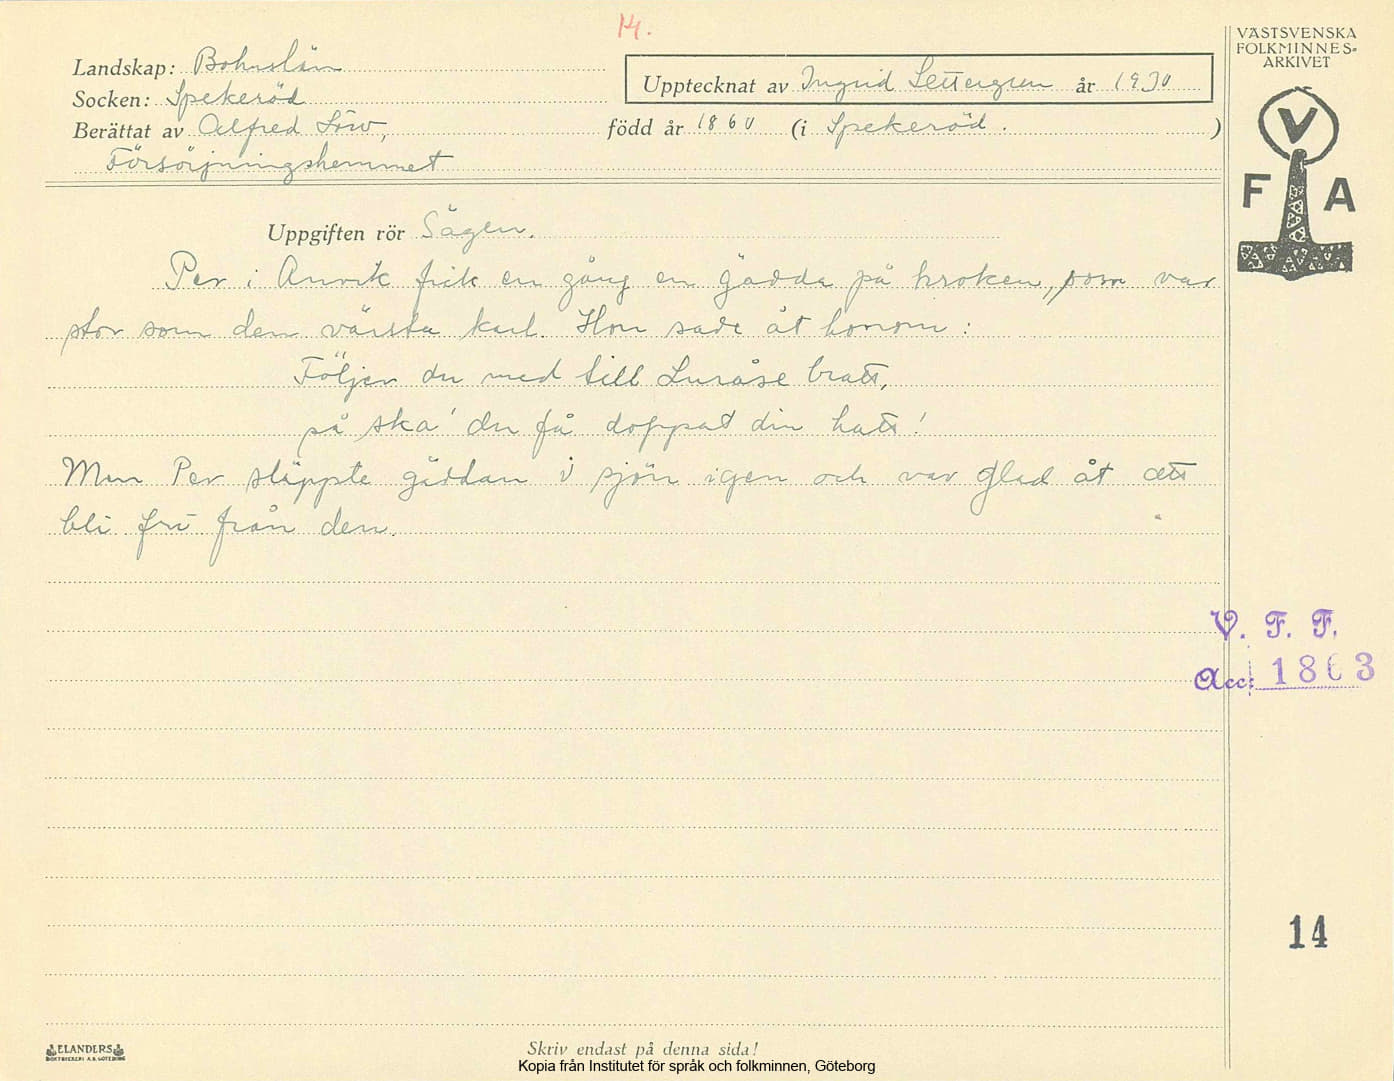 14.
VÄSTSVENSKA
FOLKMINNES-
ARKIVET
Landskap: Bohuslän
Upptecknat av Ingrid Settergren år 1930
Socken: Spekeröd
Berättat av Alfred Löw, född år 1860 (i Spekeröd. )
Försörjningshemmet
V
F A
Uppgiften rör Sägen.
Per i Anvik fick en gång en gädda på kroken, som var
stor som den värsta karl. Hon sade åt honom:
Följer du med till Luråse bratt,
så ska' du få doppat din hatt!
Men Per släppte gäddan i sjön igen och var glad åt att
bli fri från den.
V. F. F.
Acc: 1863
14
ELANDERS
BOKTRYCKERI A.B. GÖTEBORG
Skriv endast på denna sida!
Kopia från Institutet för språk och folkminnen, Göteborg